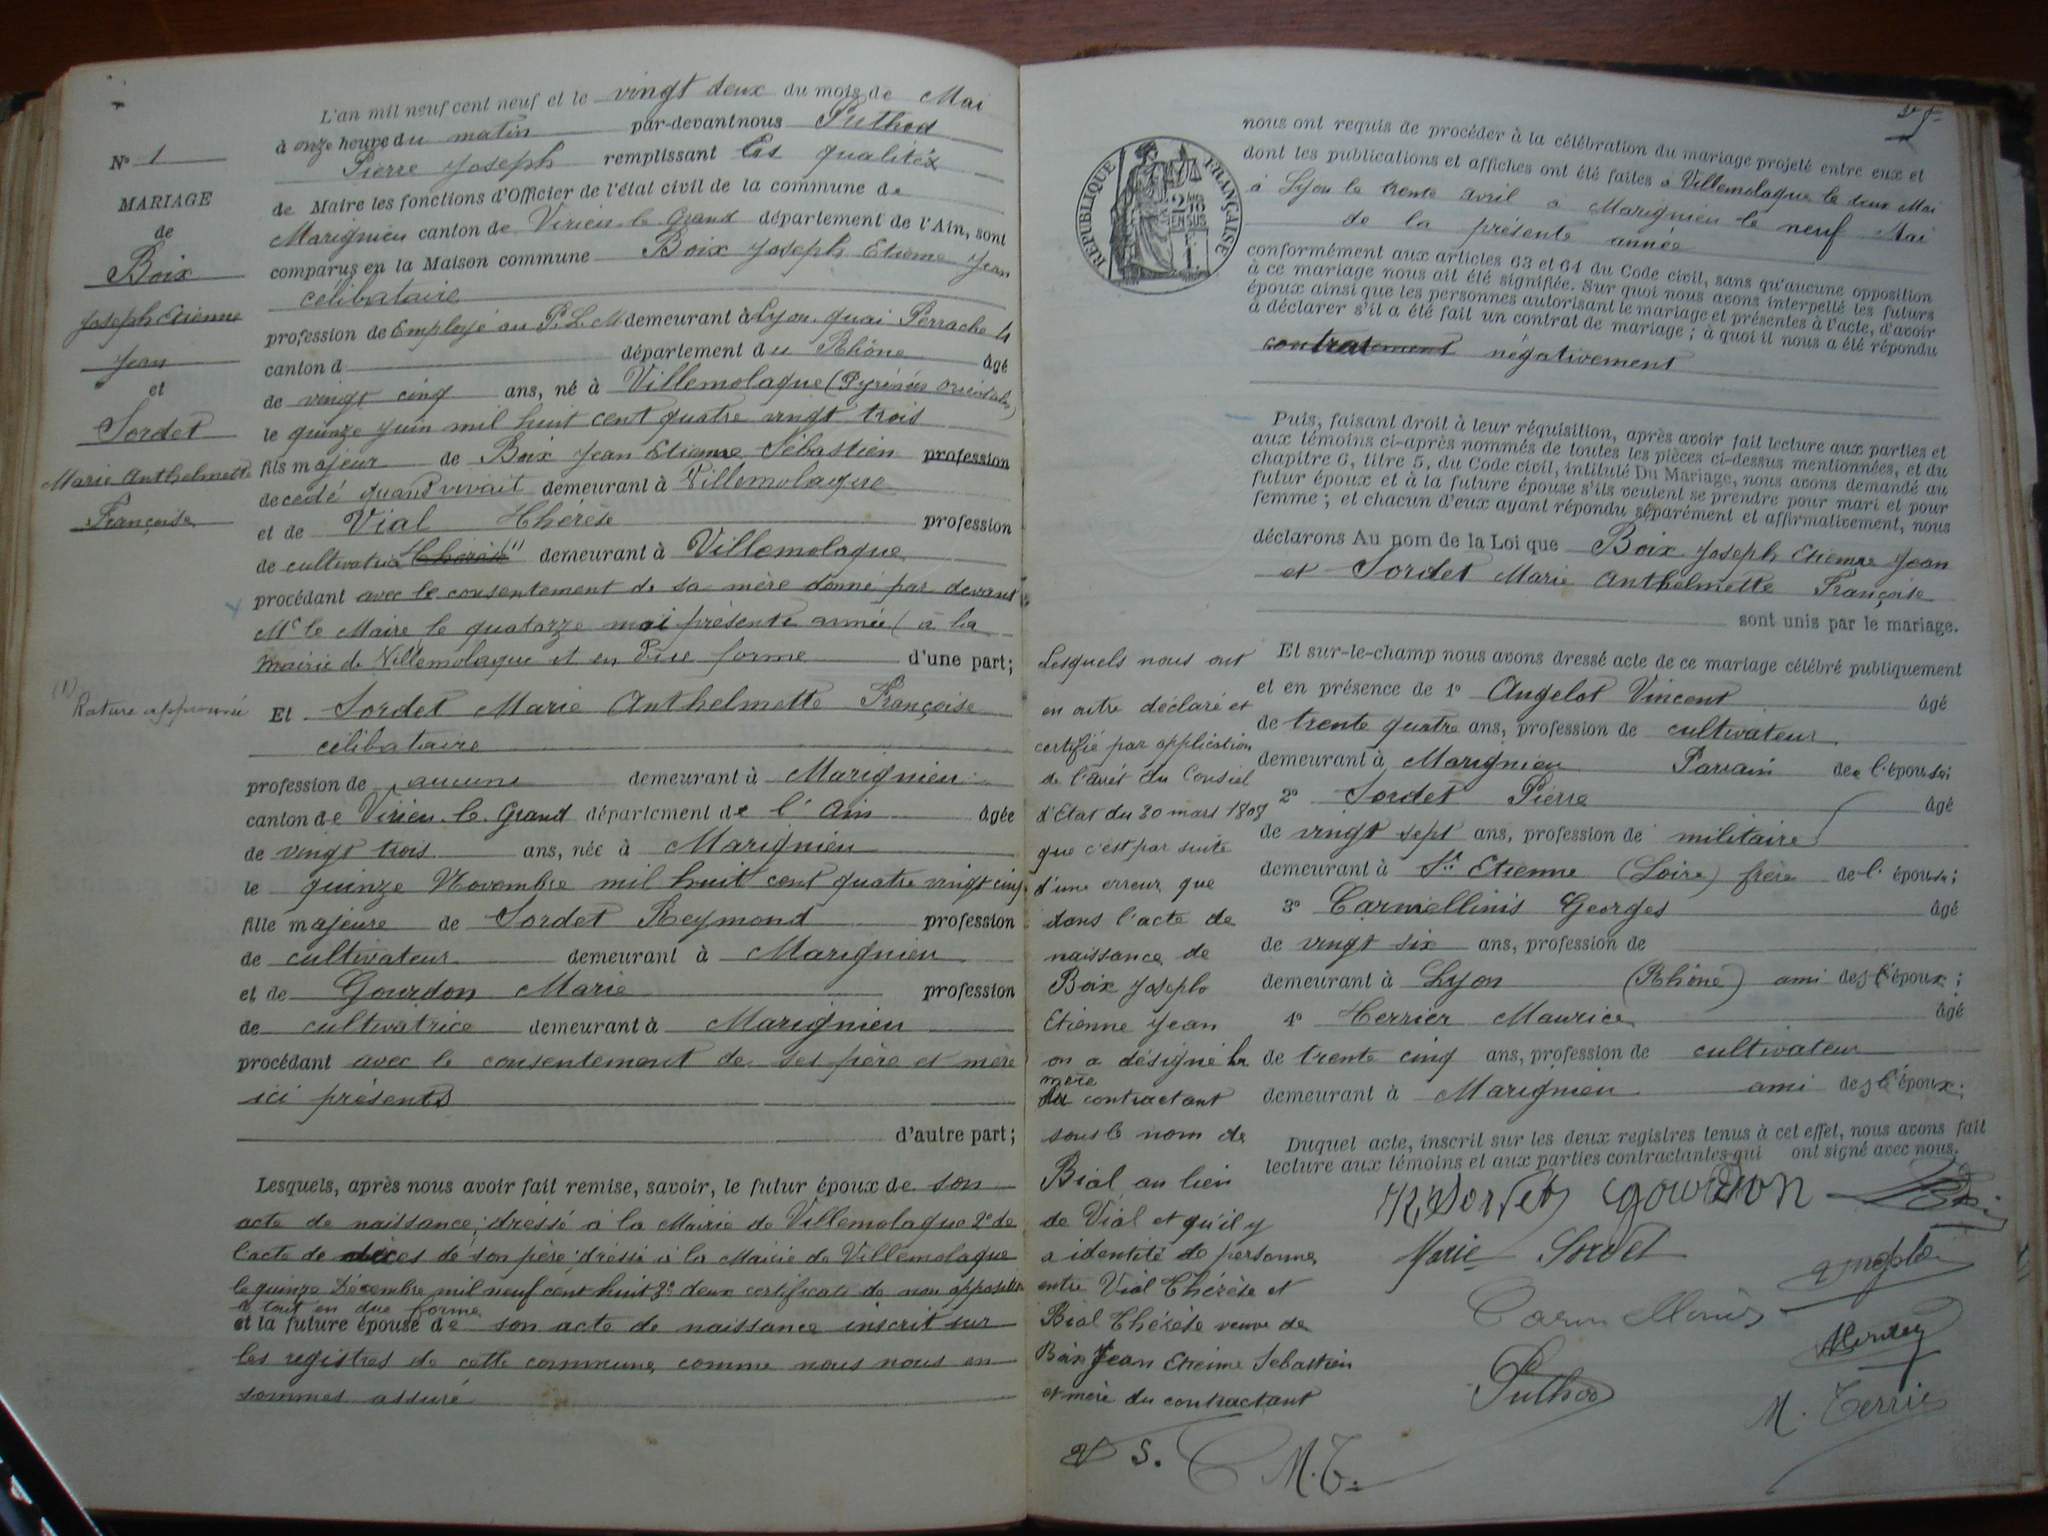 N° 1
MARIAGE
de
Boix
Joseph Etienne
Jean
et
Sordet
Marie Anthelmette
Françoise
(1) Rature approuvée
L'an mil neuf cent neuf et le vingt deux du mois de Mai
à onze heure du matin par-devant nous Puthod
Pierre Joseph remplissant les qualités
de Maire les fonctions d'Officier de l'état civil de la commune de
Marignieu canton de Virieu le Grand département de l'Ain, sont
comparus en la Maison commune Boix Joseph Etienne Jean
célibataire
profession de Employé au P.L.M demeurant à Lyon quai Perrache 14
canton d département du Rhône âgé
de vingt cinq ans, né à Villemolaque (Pyrénées Orientales)
le quinze Juin mil huit cent quatre vingt trois
fils majeur de Boix Jean Etienne Sébastien profession
décédé quand vivait demeurant à Villemolaque
et de Vial Thérèse profession
de cultivatrice Thérèse (1) demeurant à Villemolaque
procédant avec le consentement de sa mère donné par devant
Mr le Maire le quatorze mai présente année à la
mairie de Villemolaque et en due forme d'une part;
Et Sordet Marie Anthelmette Françoise
célibataire
profession de aucune demeurant à Marignieu
canton de Virieu le Grand département de l'Ain âgée
de vingt trois ans, née à Marignieu
le quinze Novembre mil huit cent quatre vingt cinq
fille majeure de Sordet Reymond profession
de cultivateur demeurant à Marignieu
et de Gourdon Marie profession
de cultivatrice demeurant à Marignieu
procédant avec le consentement de ses père et mère
ici présents
d'autre part;
Lesquels, après nous avoir fait remise, savoir, le futur époux de son
acte de naissance, dressé à la Mairie de Villemolaque 2° de
l'acte de décès de son père dressé à la Mairie de Villemolaque
le quinze Décembre mil neuf cent huit 3° deux certificats de non opposition
le tout en due forme
et la future épouse de son acte de naissance inscrit sur
les registres de cette commune, comme nous nous en
sommes assuré
nous ont requis de procéder à la célébration du mariage projeté entre eux et
dont les publications et affiches ont été faites à Villemolaque le deux Mai
à Lyon le trente avril à Marignieu le neuf Mai
de la présente année
conformément aux articles 63 et 64 du Code civil, sans qu'aucune opposition
à ce mariage nous ait été signifiée. Sur quoi nous avons interpellé les futurs
époux ainsi que les personnes autorisant le mariage et présentes à l'acte, d'avoir
à déclarer s'il a été fait un contrat de mariage; à quoi il nous a été répondu
négativement
RÉPUBLIQUE FRANÇAISE
Puis, faisant droit à leur réquisition, après avoir fait lecture aux parties et
aux témoins ci-après nommés de toutes les pièces ci-dessus mentionnées, et du
chapitre 6, titre 5, du Code civil, intitulé Du Mariage, nous avons demandé au
futur époux et à la future épouse s'ils veulent se prendre pour mari et pour
femme; et chacun d'eux ayant répondu séparément et affirmativement, nous
déclarons Au nom de la Loi que Boix Joseph Etienne Jean
et Sordet Marie Anthelmette Françoise
sont unis par le mariage.
Et sur-le-champ nous avons dressé acte de ce mariage célébré publiquement
et en présence de 1° Angelot Vincent âgé
de trente quatre ans, profession de cultivateur
demeurant à Marignieu Parrain de l'épouse;
2° Sordet Pierre âgé
de vingt sept ans, profession de militaire
demeurant à St Etienne (Loire) frère de l'épouse;
3° Carmellinis Georges âgé
de vingt six ans, profession de
demeurant à Lyon (Rhône) ami des époux;
4° Terrier Maurice âgé
de trente cinq ans, profession de cultivateur
demeurant à Marignieu ami des époux.
Duquel acte, inscrit sur les deux registres tenus à cet effet, nous avons fait
lecture aux témoins et aux parties contractantes qui ont signé avec nous.
Lesquels nous ont
en outre déclaré et
certifié par application
de l'avis du Conseil
d'Etat du 30 mars 1808
que c'est par suite
d'une erreur que
dans l'acte de
naissance de
Boix Joseph
Etienne Jean
on a désigné la
mère
du contractant
sous le nom de
Bial au lieu
de Vial et qu'il y
a identité de personne
entre Vial Thérèse et
Bial Thérèse veuve de
Boix Jean Etienne Sebastien
et mère du contractant
S. M.T.
R Sordet Gourdon
Marie Sordet
Carmellinis
Puthod
M. Terrier